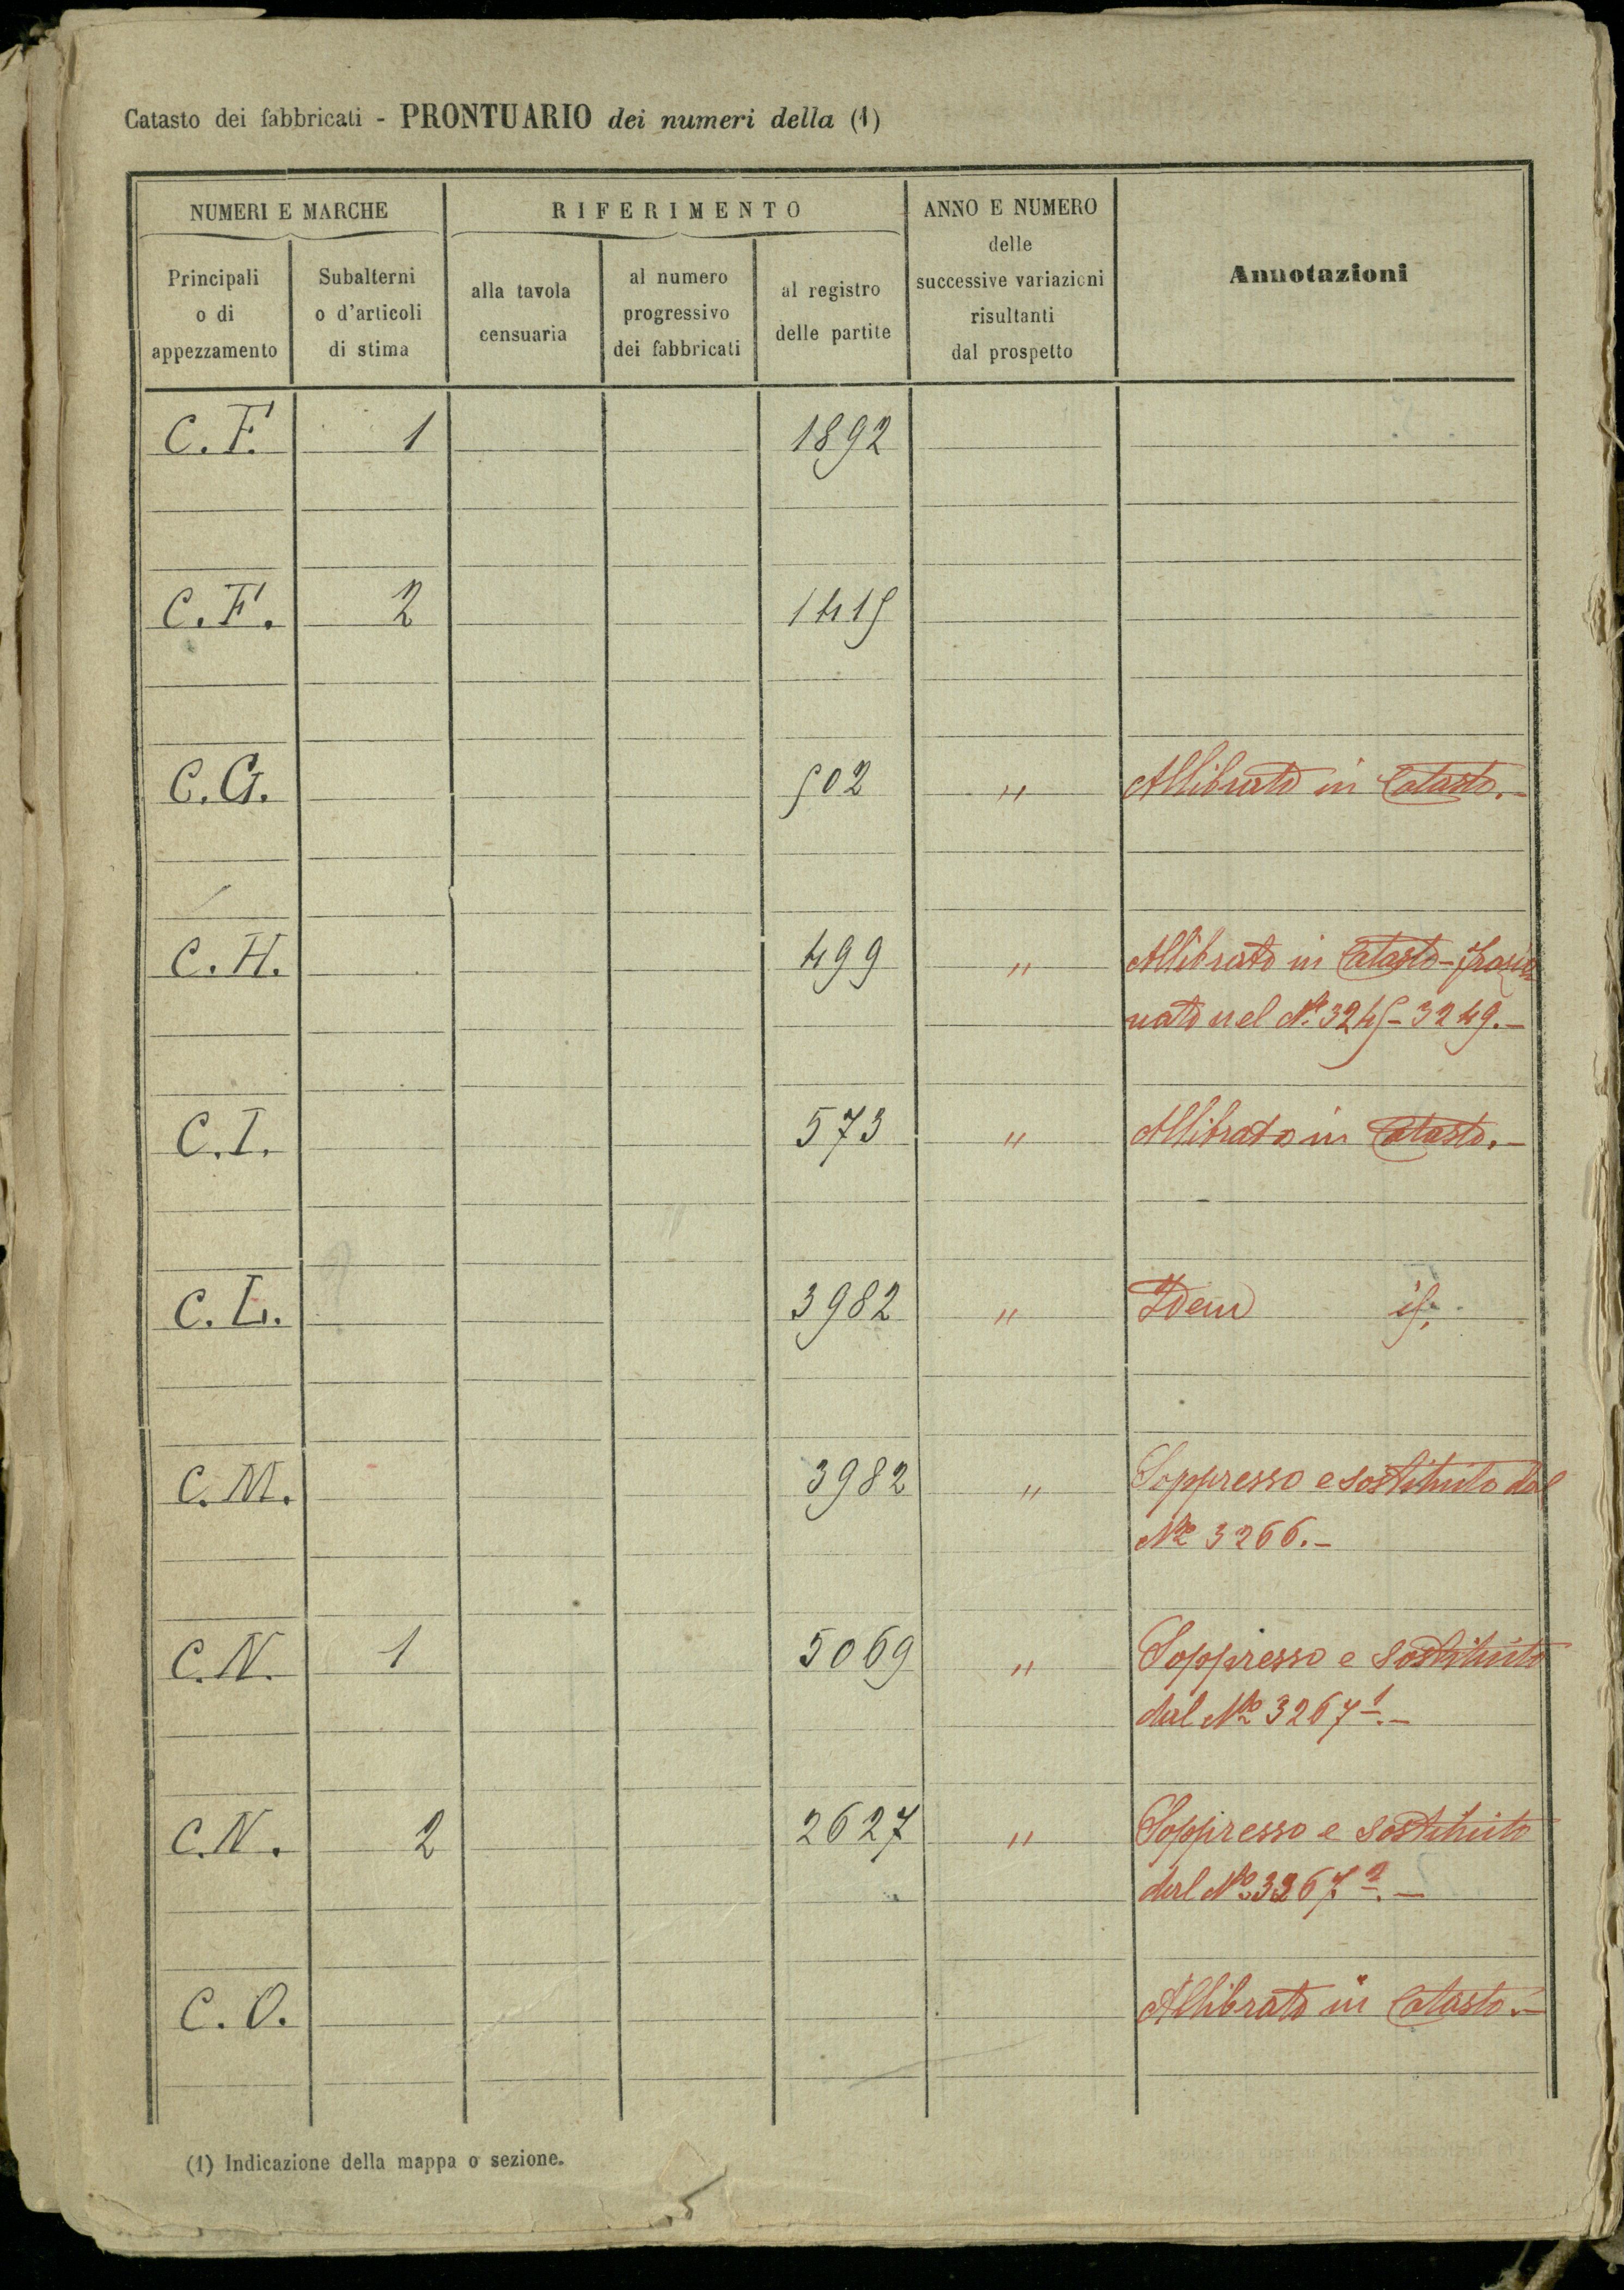 Catasto dei fabbricati - PRONTUARIO dei numeri della (1)
NUMERI E MARCHE
RIFERIMENTO
ANNO E NUMERO
delle
successive variazioni
risultanti
dal prospetto
Annotazioni
Principali
o di
appezzamento
Subalterni
o d'articoli
di stima
alla tavola
censuaria
al numero
progressivo
dei fabbricati
al registro
delle partite
C.F. 1 1892
C.F. 2 1415
C.G. 502 " Allibrato in Catasto.-
C.H. 499 " Allibrato in Catasto - frazio
nato nel N.° 3245 - 3249.-
C.I. 573 " Allibrato in Catasto.-
C.L. 3982 " Idem
C.M. 3982 " Soppresso e sostituito dal
N.° 3266.-
C.N. 1 5069 " Soppresso e sostituito
dal N.° 3267 1.-
C.N. 2 2627 " Soppresso e sostituito
dal N.° 3267 2.-
C.O. Allibrato in Catasto.-
(1) Indicazione della mappa o sezione.